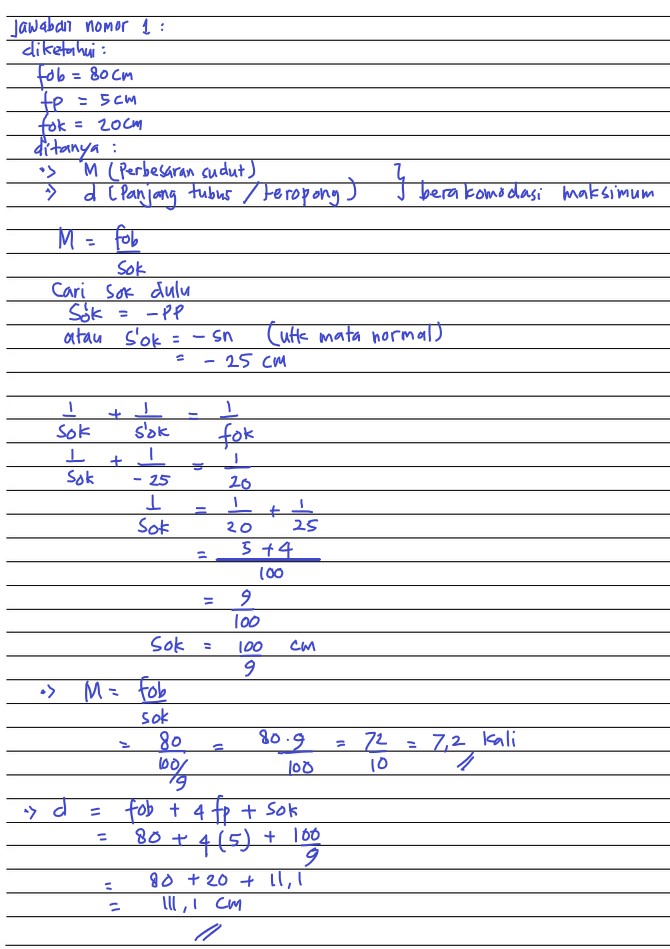 Jawaban nomor 1 :
diketahui :
fob = 80 cm
fp = 5 cm
fok = 20 cm
ditanya :
•> M (Perbesaran sudut)
•> d (Panjang tubus / teropong) } berakomodasi maksimum
M = fob / Sok
Cari Sok dulu
S'ok = - PP
atau s'ok = - sn (utk mata normal)
= - 25 cm
1/Sok + 1/s'ok = 1/fok
1/Sok + 1/-25 = 1/20
1/Sok = 1/20 + 1/25
= 5 + 4 / 100
= 9/100
Sok = 100/9 cm
•> M = fob / sok
= 80 / 100/9 = 80 . 9 / 100 = 72/10 = 7,2 kali
•> d = fob + 4 fp + Sok
= 80 + 4 (5) + 100/9
= 80 + 20 + 11,1
= 111,1 cm